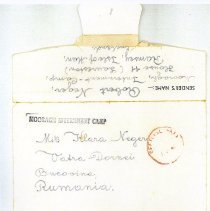 SENDER'S NAME:— Robert Neger,
Mooragh Internment Camp,
House 11 (Laureston)
Ramsey, Isle of Man
England.
MOORAGH INTERNMENT CAMP
Mrs Klara Neger
Vatra-Dornei
Bucovina
Rumania.